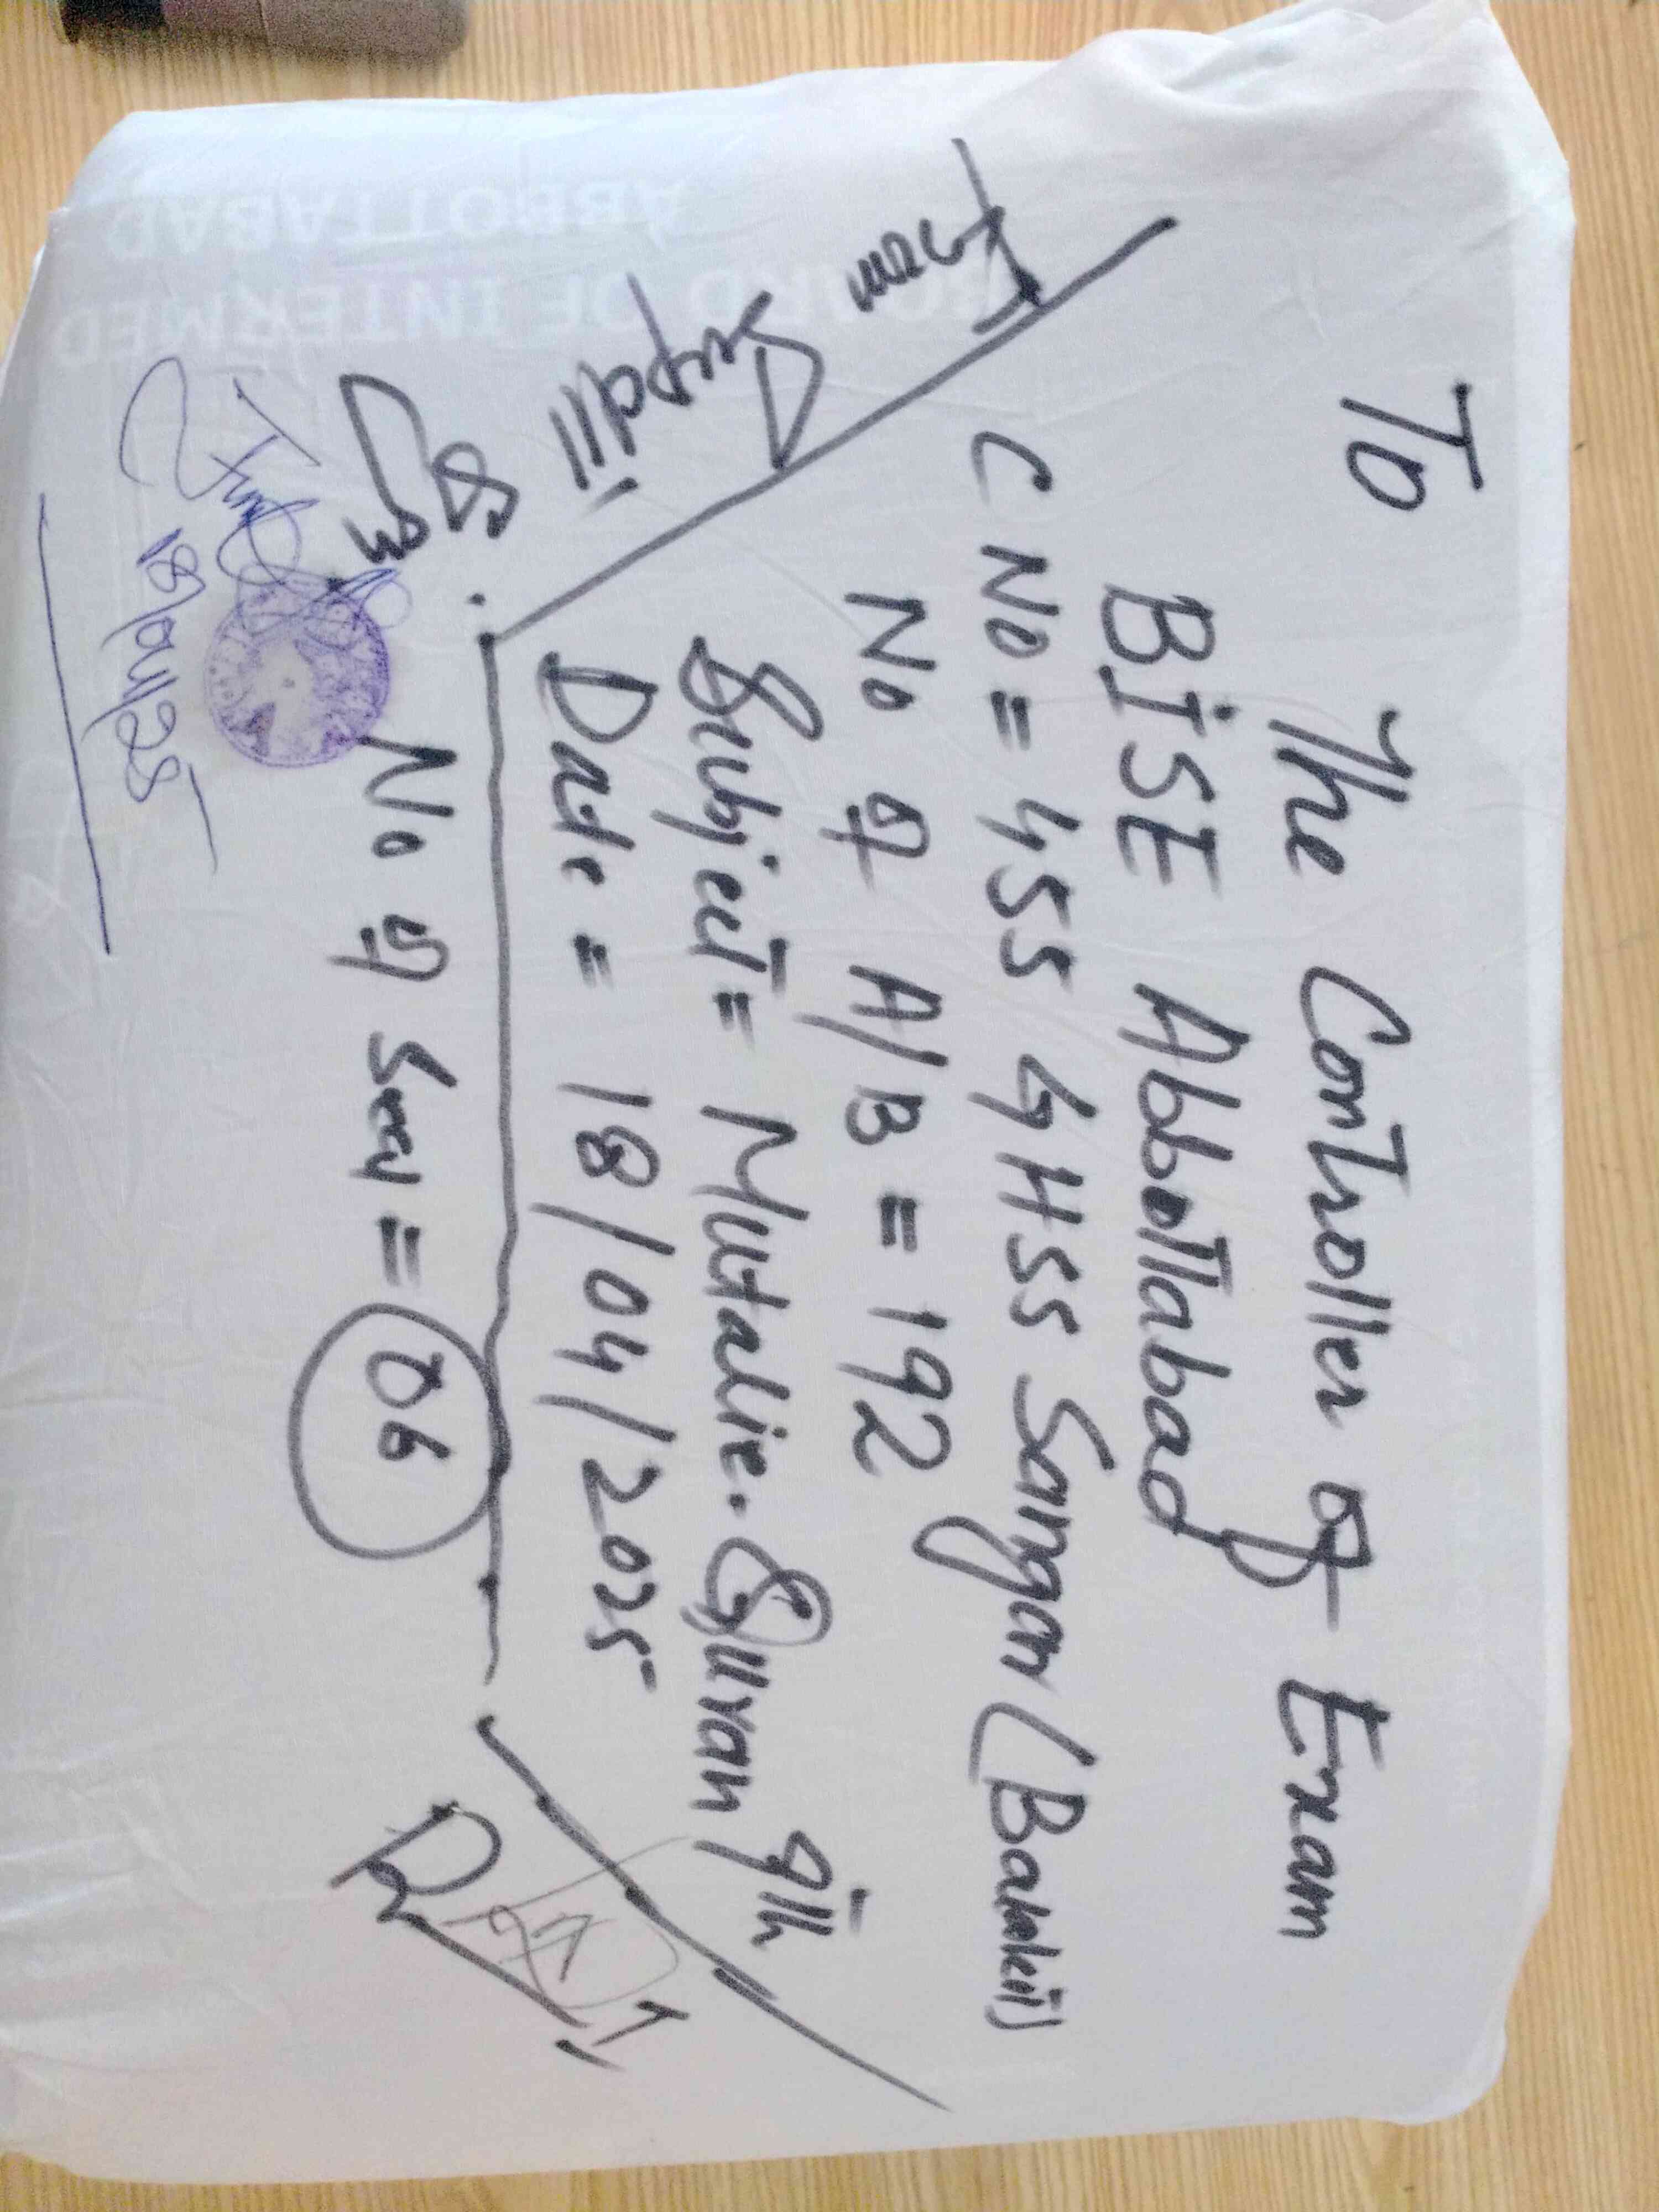 To
The Controller of Exam
BISE Abbottabad
C No = 455 GHSS Sangar (Balakot)
No of A/B = 192
Subject = Mutalie.Quran 9th
Date = 18/04/2025
From
Supdtt
No of = 06
18/04/25
BOARD OF INTERMED
ABBOTTABAD